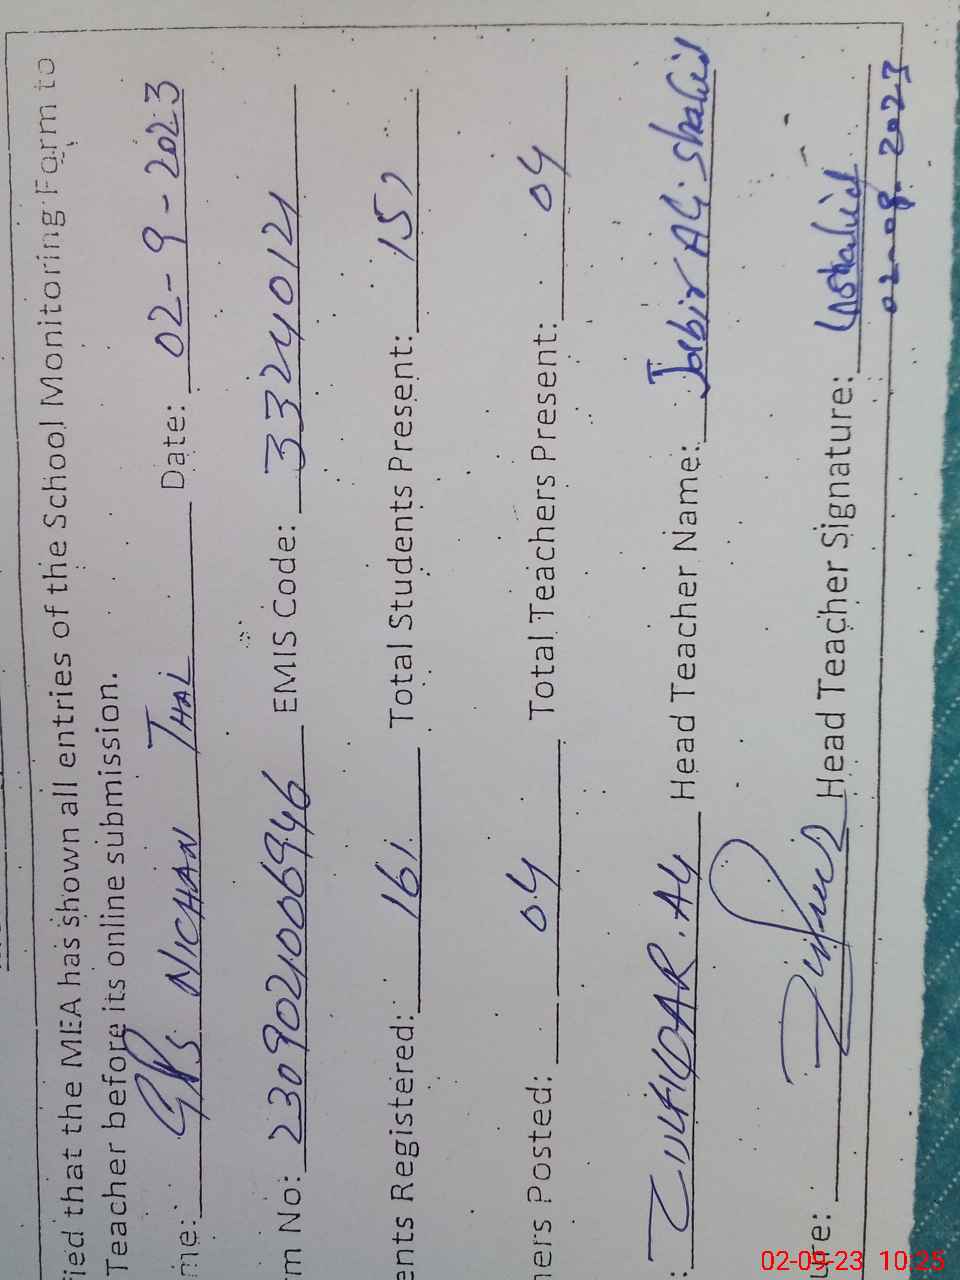 fied that the MEA has shown all entries of the School Monitoring Form to
Teacher before its online submission.
me: GPS NICHAN THAL Date: 02-9-2023
rm No: 2309021006946 EMIS Code: 33240121
ents Registered: 161 Total Students Present: 157
hers Posted: 04 Total Teachers Present: 04
: ZULFIQAR. Ali Head Teacher Name: Jabir Ali Shahid
ure: Head Teacher Signature:
02-08-2023
02-09-23 10:25